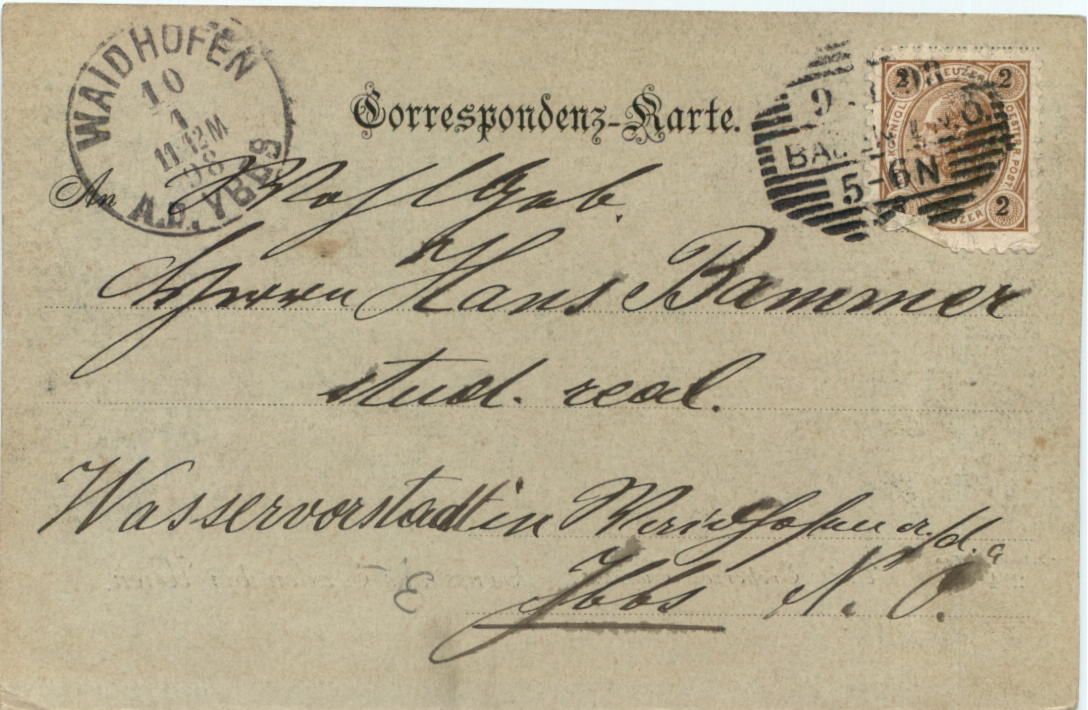 WAIDHOFEN
10
1
11-12M
98
A.D. YBBS
9 98
BAD
5-6N
2 KREUZER 2
KÖNIGL. OESTERR. POST.
2
Correspondenz-Karte.
An Wohlgeb.
Herrn Hans Bammer
stud. real.
Wasservorstadt in Waidhofen a./d.
Ybbs N. Ö.
3